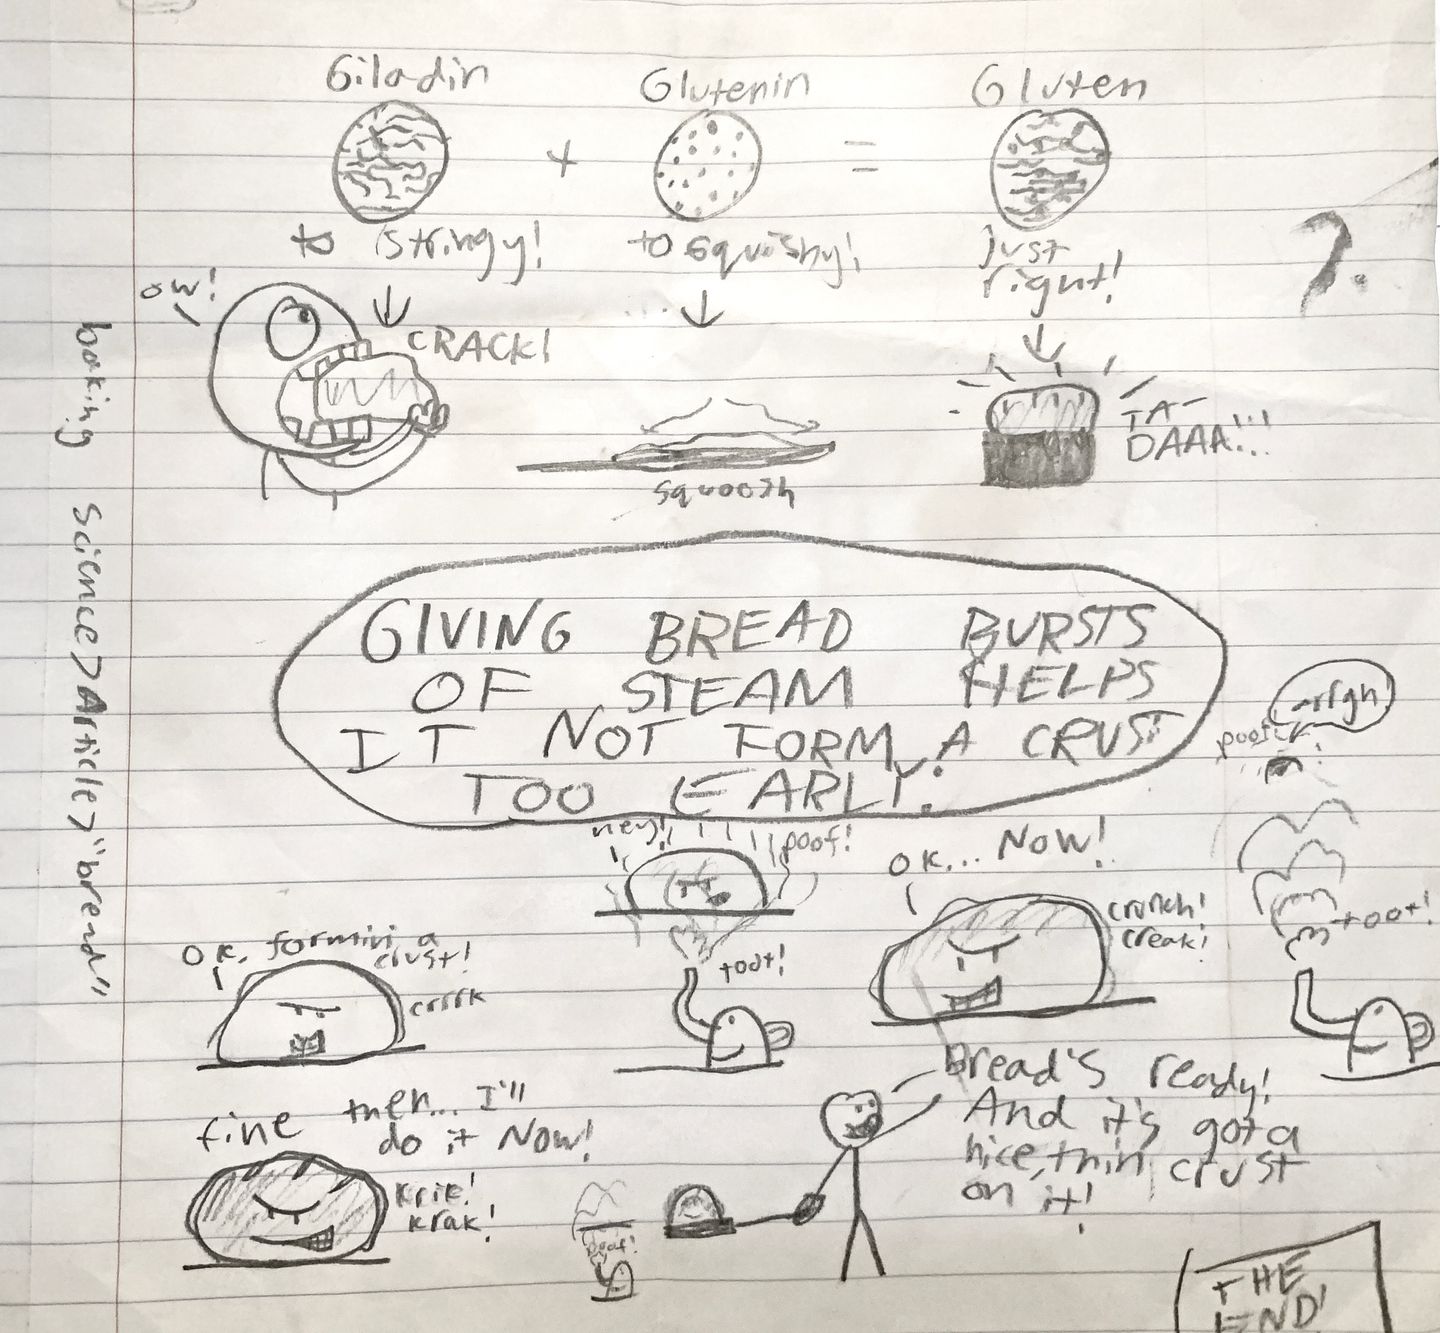 Giladin
Glutenin
Gluten
+
=
to stringy!
to squishy!
just
right!
?.
ow!
CRACK!
squoosh
TA-
DAAA!!!
baking Science > Article > "bread"
GIVING BREAD BURSTS
OF STEAM HELPS
IT NOT FORM A CRUST
TOO EARLY!
OK, formin a
crust!
crrrk
hey!
poof!
toot!
OK... NOW!
crunch!
creak!
arrgh
toot!
fine then... I'll
do it NOW!
krik!
krak!
poof!
Bread's ready!
And it's got a
nice, thin crust
on it!
THE
END!